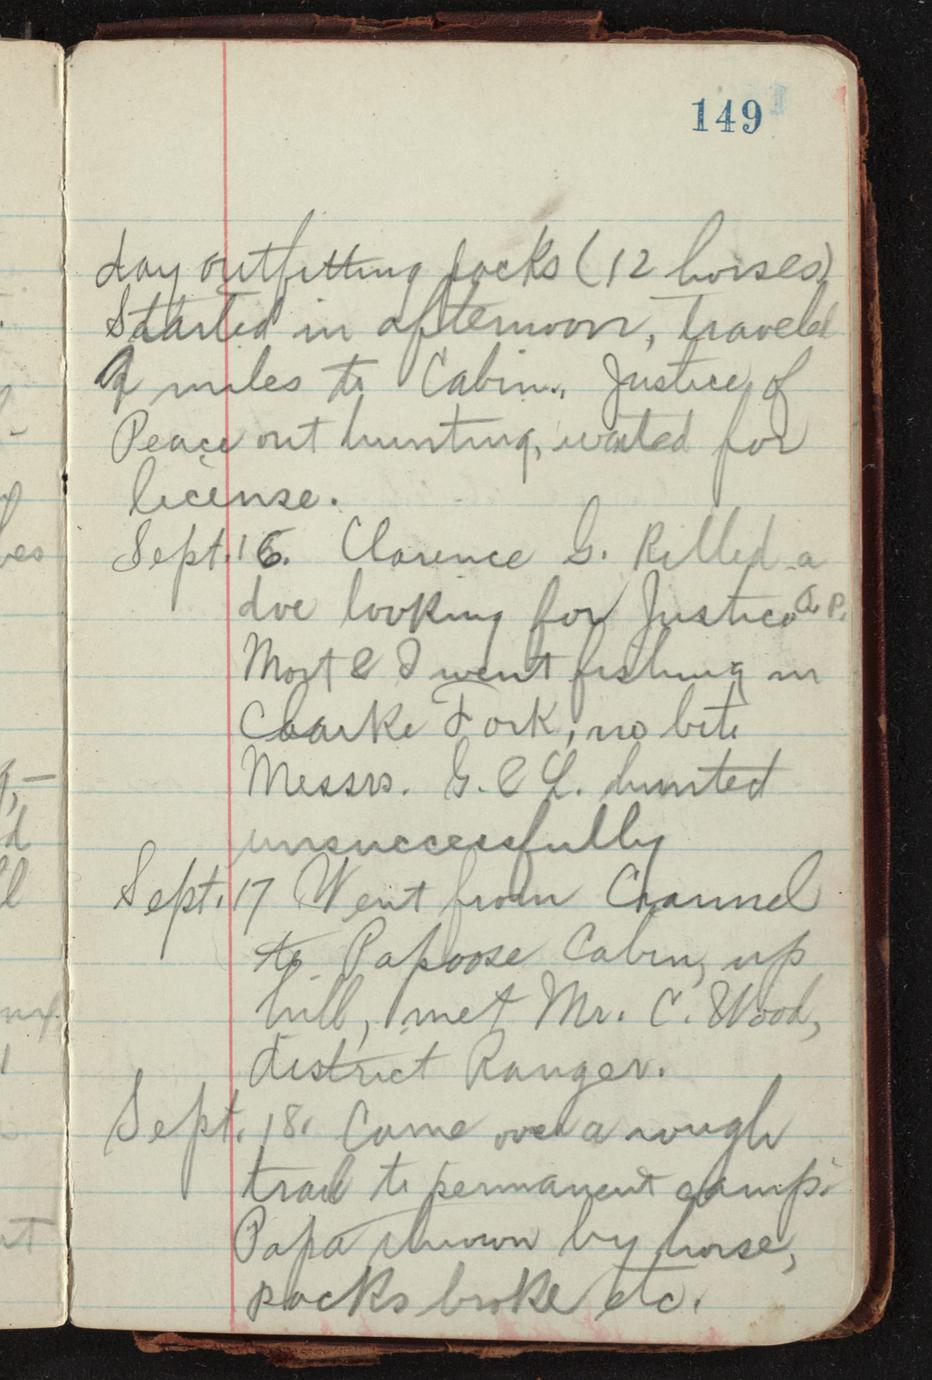 149
day outfitting packs (12 horses)
Started in afternoon, traveled
9 miles to Cabin., Justice of
Peace out hunting, waited for
license.
Sept. 16. Clarence G. Killed a
doe looking for Justice o. P.
Mort & I went fishing in
Clarke Fork, no bite
Messrs. G. & L. hunted
unsuccessfully
Sept. 17 Went from Channel
to Papoose Cabin, up
hill, met Mr. C. Wood,
district Ranger.
Sept. 18. Came over a rough
trail to permanent camp.
Papa thrown by horse,
packs broke etc.